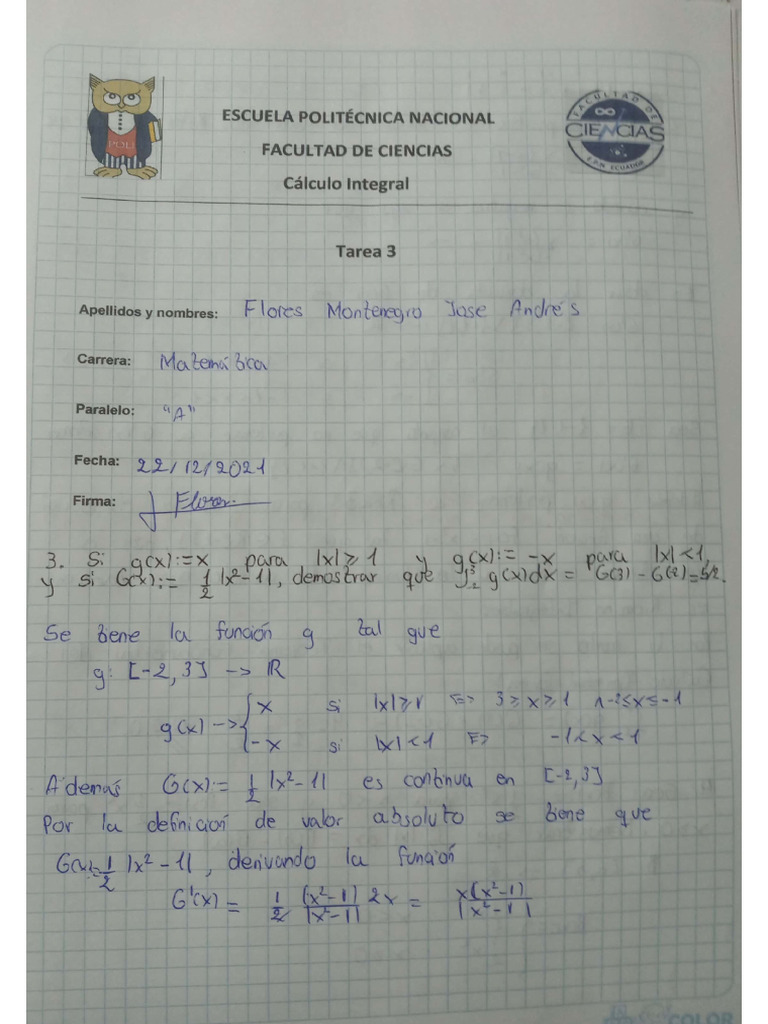 ESCUELA POLITÉCNICA NACIONAL
FACULTAD DE CIENCIAS
Cálculo Integral
POLI
FACULTAD DE
CIENCIAS
E.P.N. ECUADOR
Tarea 3
Apellidos y nombres: Flores Montenegro Jose Andrés
Carrera: Matemática
Paralelo: "A"
Fecha: 22/12/2021
Firma: J Flores
3. Si g(x):=x para |x|≥1 y g(x):= -x para |x|<1,
y si G(x):= 1/2 |x²-1|, demostrar que ∫³₋₂ g(x)dx = G(3) - G(2)=5/2.
Se tiene la función g tal que
g: [-2,3] -> ℝ
g(x) -> { x si |x|≥1 <=> 3≥x≥1 ∧ -2≤x≤-1
-x si |x|<1 <=> -1<x<1
Además G(x):= 1/2 |x²-1| es continua en [-2,3]
Por la definición de valor absoluto se tiene que
G(x):=1/2 |x²-1|, derivando la función
G'(x) = 1/2 (x²-1)/|x²-1| 2x = x(x²-1)/|x²-1|
COLOR